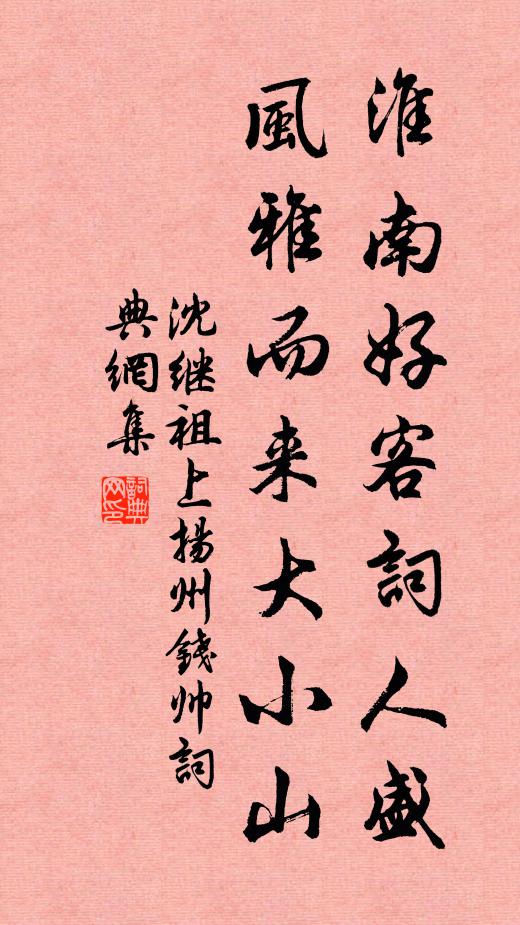 淮南好客詞人盛
風雅而来大小山
沈继祖上揚州錢帅詞
典網集
詞典网印